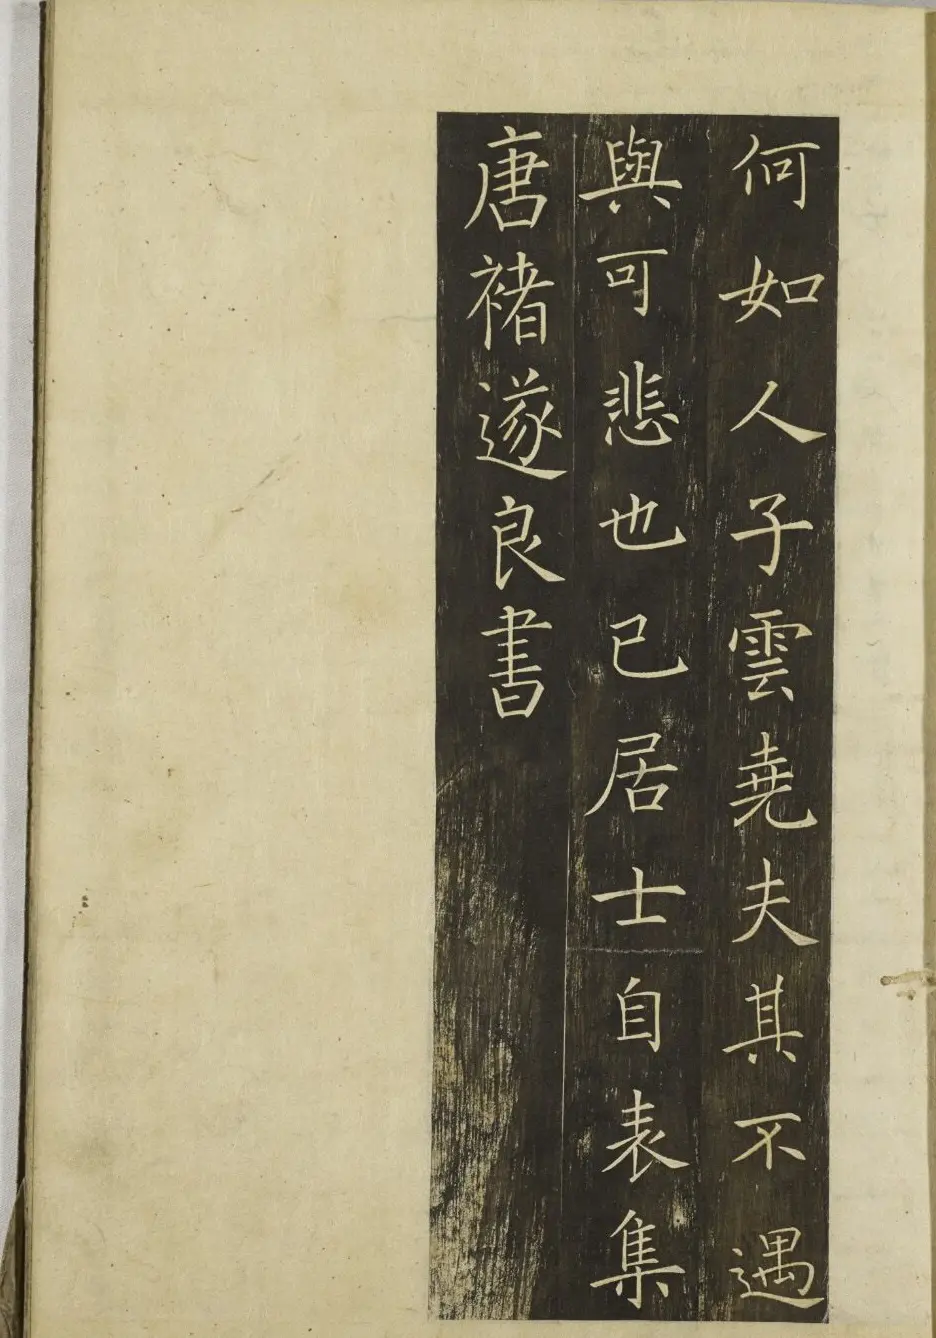 何如人子雲堯夫其不遇
與可悲也已居士自表集
唐褚遂良書